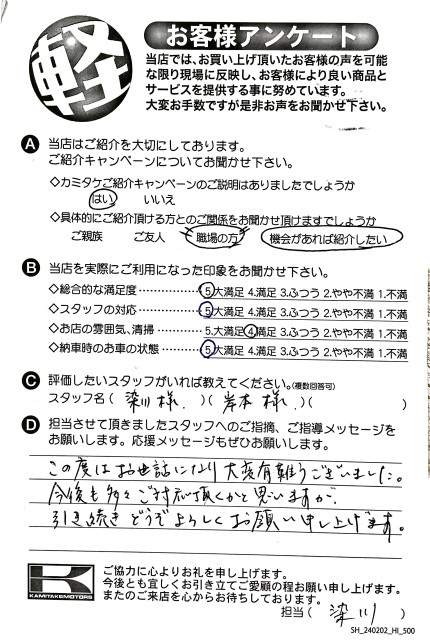 軽
お客様アンケート
当店では、お買い上げ頂いたお客様の声を可能
な限り現場に反映し、お客様により良い商品と
サービスを提供する事に努めています。
大変お手数ですが是非お声をお聞かせ下さい。
A 当店はご紹介を大切にしております。
ご紹介キャンペーンについてお聞かせ下さい。
◇カミタケご紹介キャンペーンのご説明はありましたでしょうか
はい いいえ
◇具体的にご紹介頂ける方とのご関係をお聞かせ頂けますでしょうか
ご親族 ご友人 職場の方 機会があれば紹介したい
B 当店を実際にご利用になった印象をお聞かせ下さい。
◇総合的な満足度 5.大満足 4.満足 3.ふつう 2.やや不満 1.不満
◇スタッフの対応 5.大満足 4.満足 3.ふつう 2.やや不満 1.不満
◇お店の雰囲気、清掃 5.大満足 4.満足 3.ふつう 2.やや不満 1.不満
◇納車時のお車の状態 5.大満足 4.満足 3.ふつう 2.やや不満 1.不満
C 評価したいスタッフがいれば教えてください。(複数回答可)
スタッフ名 ( 染川様. )( 岸本様. )( )
D 担当させて頂きましたスタッフへのご指摘、ご指導メッセージを
お願いします。応援メッセージもぜひお願いします。
この度はお世話になり大変有難うございました。
今後も多々ご対応頂くかと思いますが、
引き続きどうぞよろしくお願い申し上げます。
K
KAMITAKEMOTORS
ご協力に心よりお礼を申し上げます。
今後とも宜しくお引き立てご愛顧の程お願い申し上げます。
またのご来店を心からお待ちしております。
担当 ( 染川 )
SH_240202_HI_500